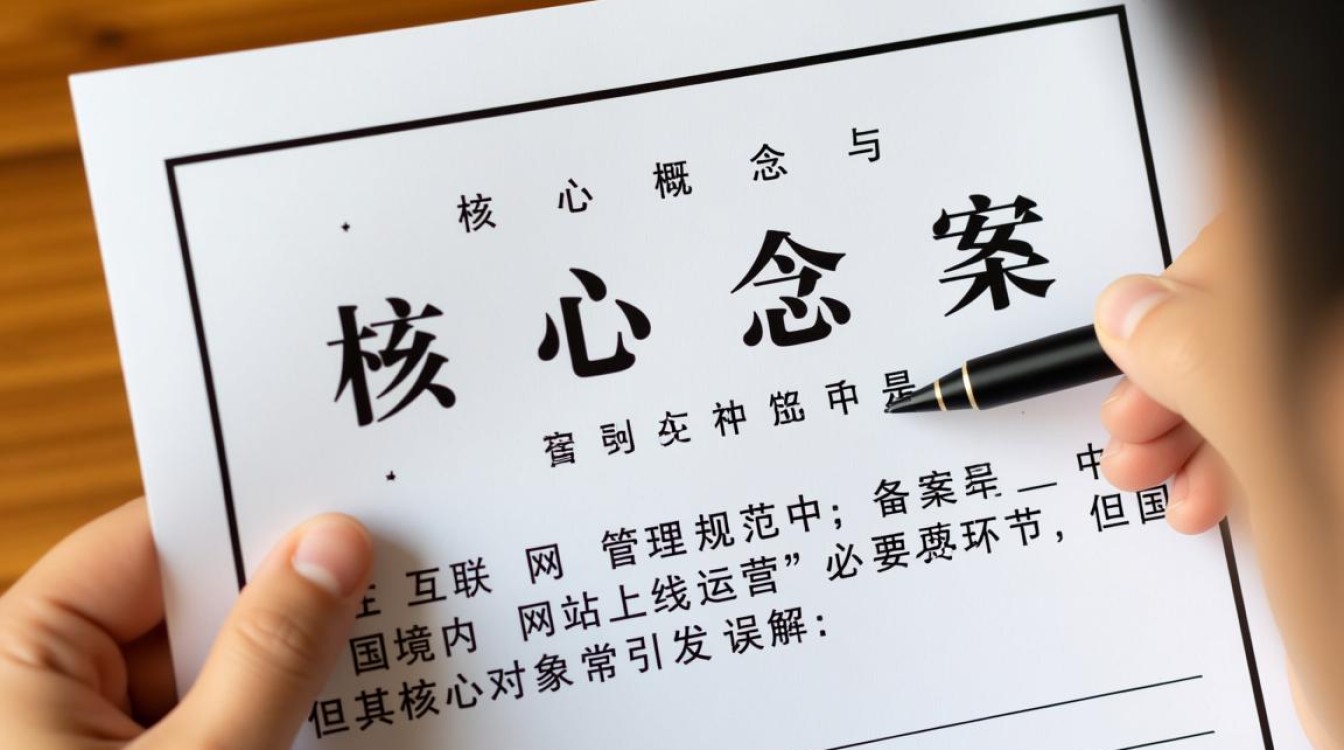 核心概念与
核心念案
中是
互联 网 管理规范中；备案是 — 中
国境内 网站上线运营”必要 环节，但国
但其核心对象常引发误解：